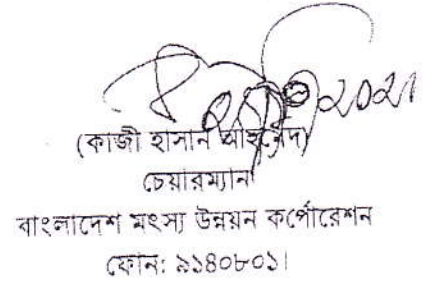 (কাজী হাসান আহমেদ)
চেয়ারম্যান
বাংলাদেশ মৎস্য উন্নয়ন কর্পোরেশন
ফোন: ৯১৪০৮০১।